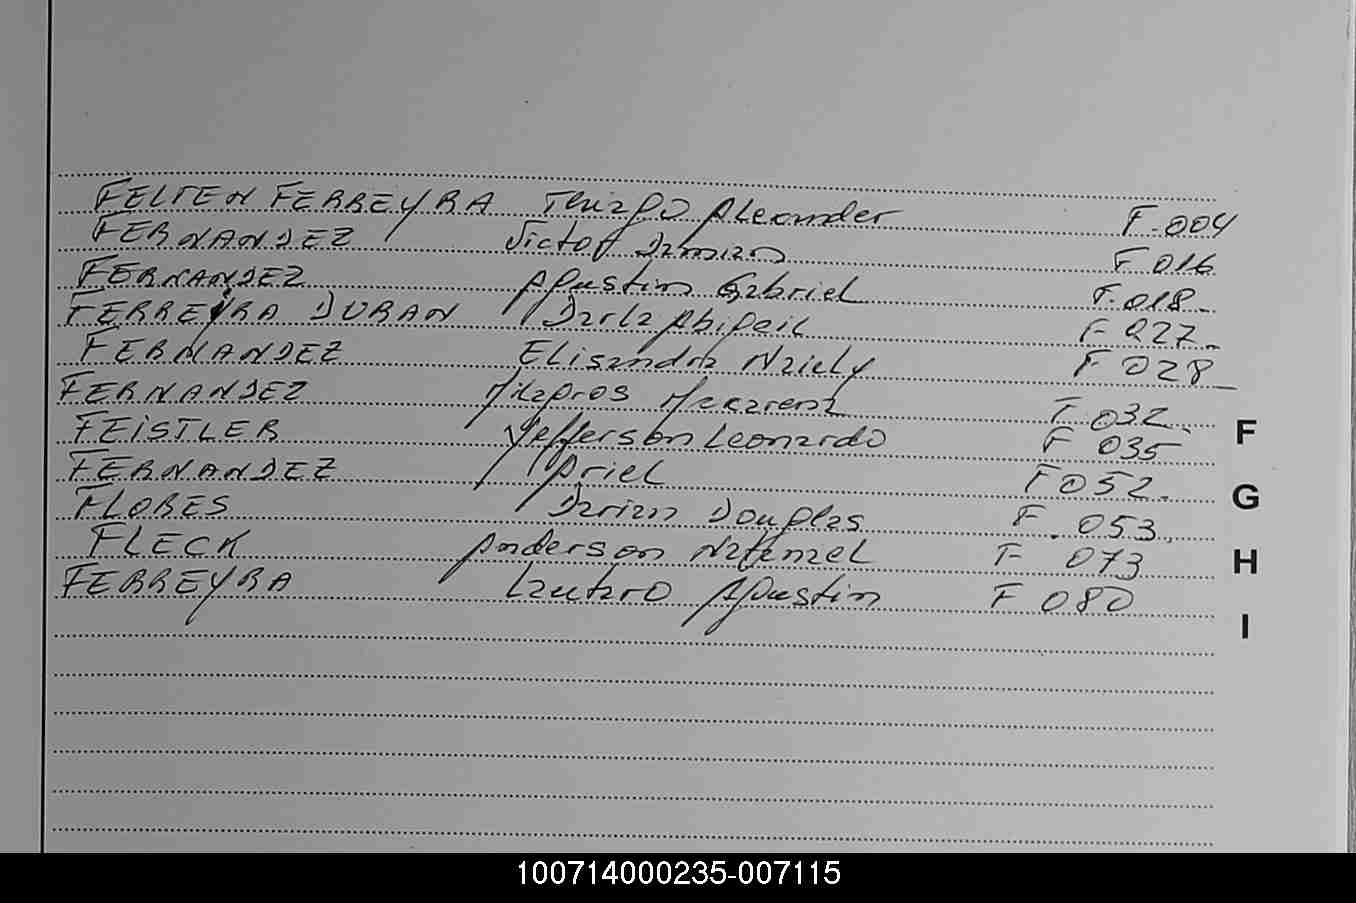 FELTEN FERREYRA Thiago Alexander F.004
FERNANDEZ Victor Damian F 016
FERNANDEZ Agustin Gabriel F.018-
FERREYRA DURAN Darla Abigail F 027.
FERNANDEZ Elisandra Naiely F 028
FERNANDEZ Milagros Macarena F 032
FEISTLER Yefferson Leonardo F 035
FERNANDEZ Ariel F 052.
FLORES Darian Douglas F 053.
FLECK Anderson Natanael F 073
FERREYRA Lautaro Agustin F 080
F
G
H
I
100714000235-007115